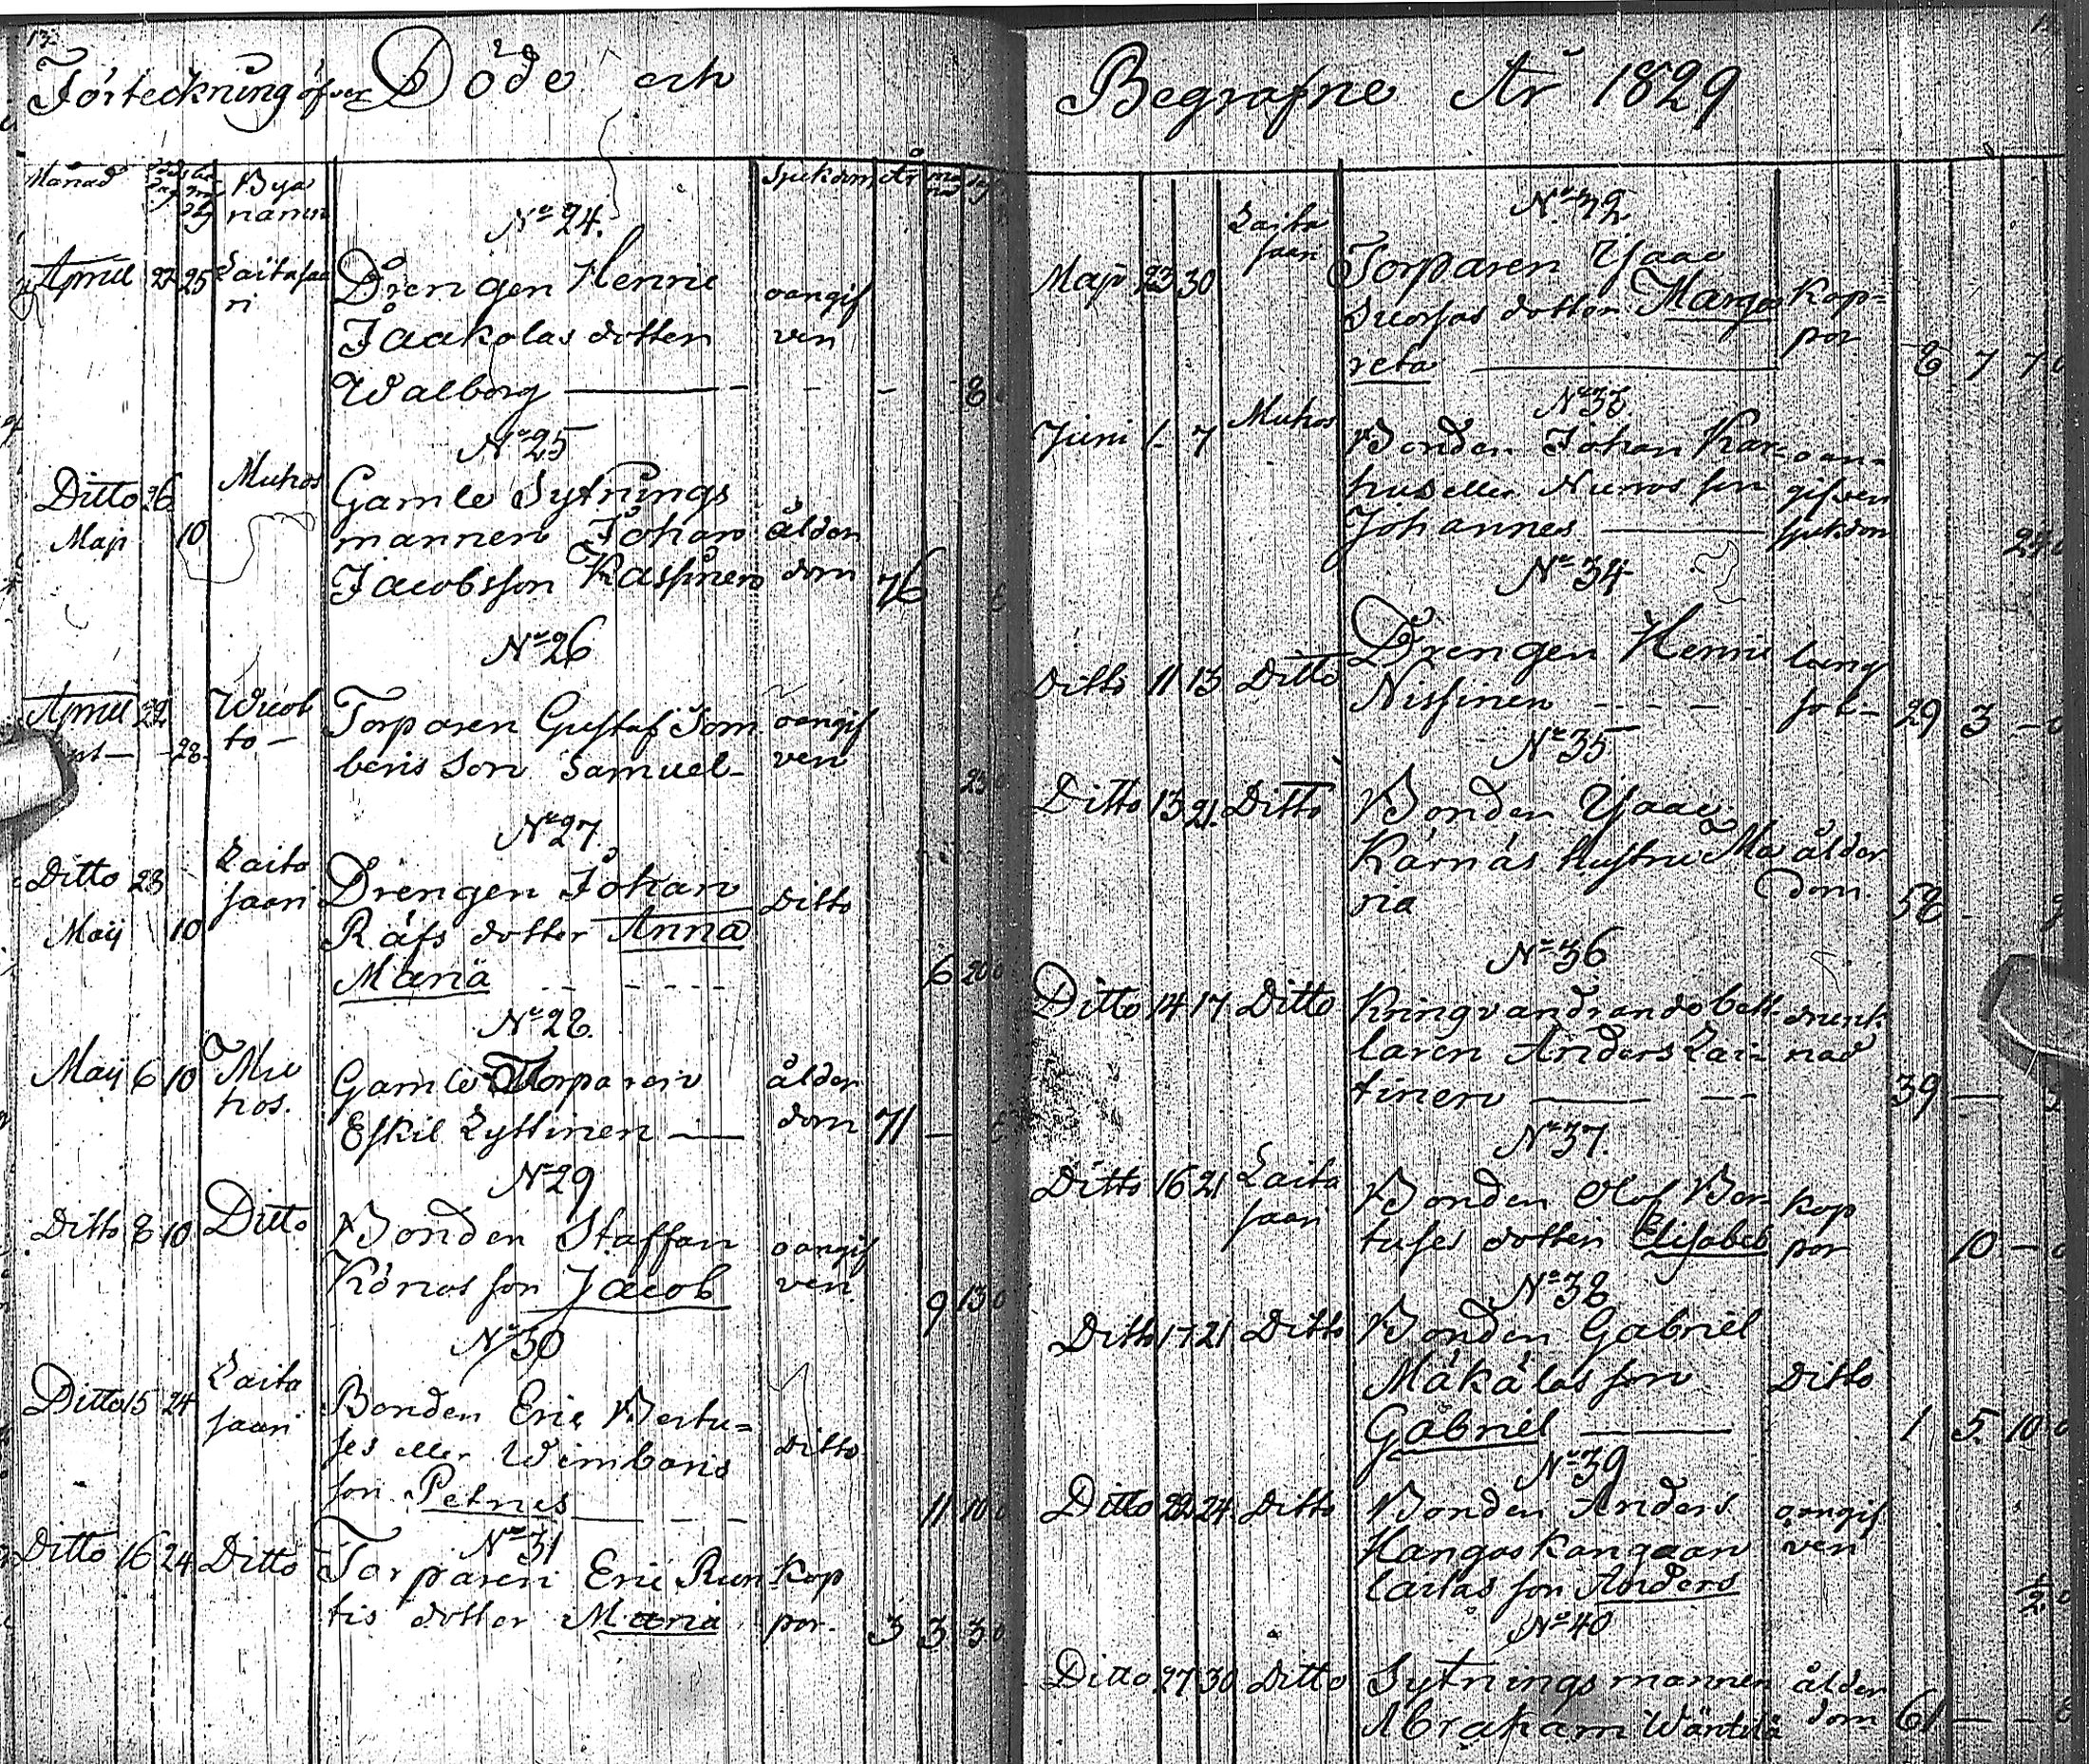 Förteckning öfver Döde och
Månad
Bya
namn
Sjukdom År
No 24.
April 22 25 Laitasaa
ri
Drengen Henric
Jaakolas dotter
Walborg
oangif
ven
8
No 25
Ditto 26
Maji 10
Muhos
Gamle Sytnings
mannen Johan
Jacobsson Kassinen
ålder
dom
76
No 26
April 22
28
to
Torparen Gustaf Tom
beris Son Samuel
oangif
ven
No 27
Ditto 23
Maij 10
Laita
saari
Drengen Johan
Räfs dotter Anna
Maria
Ditto
6 20
No 28.
Maij 6 10
Mu
hos.
Gamle Torparen
Eskil Lyttinen
ålder
dom
71
No 29
Ditto 8 10 Ditto
Bonden Staffan
Könos son Jacob
oangif
ven
9 13
No 30
Ditto 15 24
Laita
saari
Bonden Eric Bertu=
ses eller Wimbaris
son Petrus
Ditto
11 10
No 31
Ditto 16 24 Ditto
Torparen Eric Run
tis dotter Maria
Kop
por.
3 3 3
Begrafne År 1829
No 32.
Maji 23 30
Laita
saari
Torparen Isaac
Suorsas dotter Marga
reta
Kop=
por
8 7 7
No 33.
Juni 1 7 Muhos
Bonden Johan Kar=
hus eller Nuros son
Johannes
oan=
gifven
sjukdom
No 34
Ditto 11 13 Ditto
Drengen Henric
Nissinen
lung
sot
29 3
No 35
Ditto 13 21. Ditto
Bonden Isaac
Kärnäs Hustru Ma
ria
ålder
dom
58
No 36
Ditto 14 17 Ditto
Kringvandrande bett
laren Anders Lai
tinen
drunk
nad
39
No 37.
Ditto 16 21
Laita
saari
Bonden Olof Ber
tuses dotter Elisabeb
kop
por
10
No 38
Ditto 17 21 Ditto
Bonden Gabriel
Mäkälas son
Gabriel
Ditto
1 5 10
No 39
Ditto 22 24 Ditto
Bonden Anders
Hangaskangaan
laitas son Anders
oangif
ven
1/2
No 40
Ditto 27 30 Ditto
Sytningsmannen
Abraham Wäntilä
ålder
dom
61